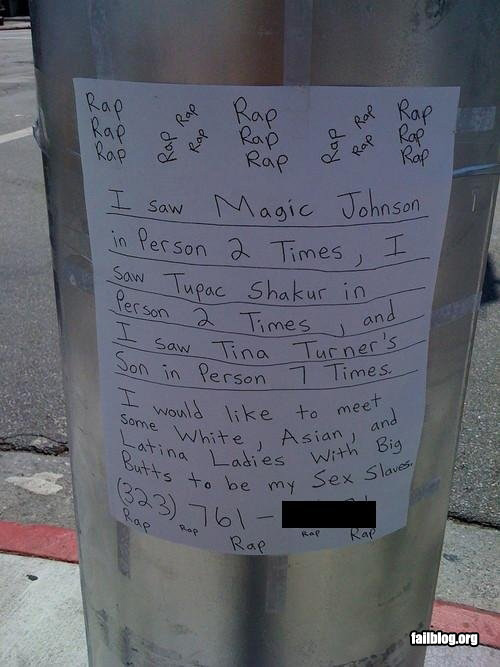 Rap Rap Rap Rap Rap
Rap Rap Rap Rap Rap Rap
Rap Rap Rap
I saw Magic Johnson
in Person 2 Times, I
saw Tupac Shakur in
Person 2 Times, and
I saw Tina Turner's
Son in Person 7 Times.
I would like to meet
some White, Asian, and
Latina Ladies With Big
Butts to be my Sex Slaves.
(323) 761-
Rap Rap Rap Rap Rap
failblog.org